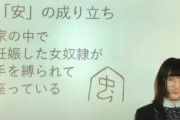 「安」の成り立ち
家の中で
妊娠した女奴隷が
手を縛られて
座っている